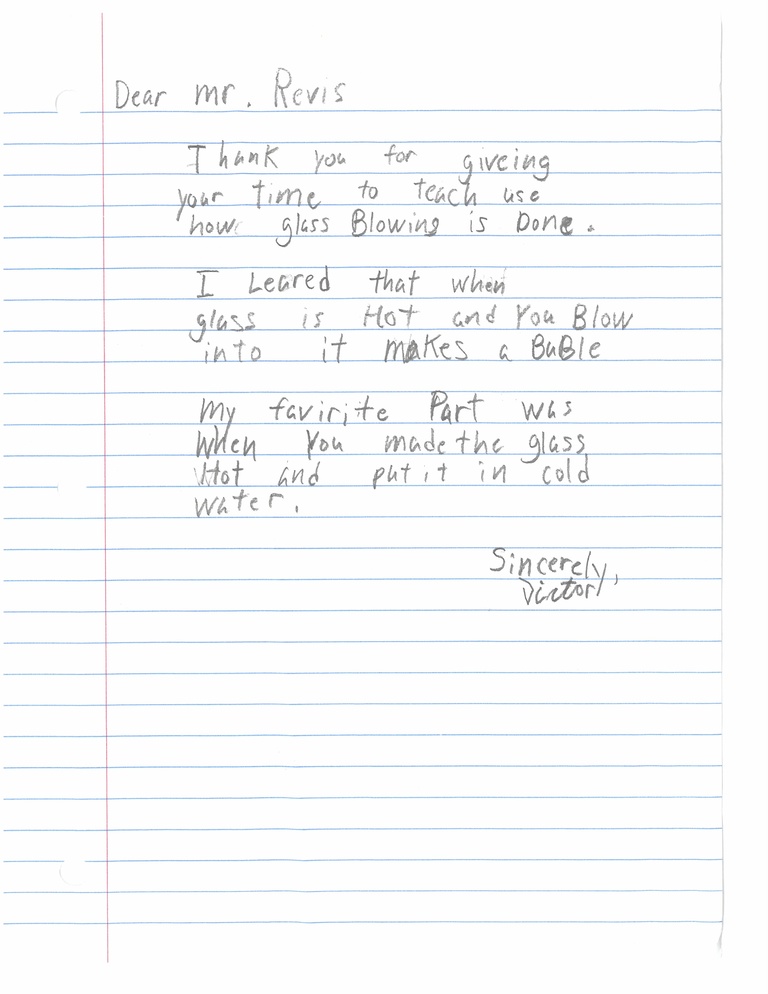 Dear mr. Revis
Thank you for giveing
your time to teach use
how glass Blowing is Done.
I Leared that when
glass is Hot and You Blow
into it makes a BuBle
My favirite Part was
When You made the glass
Hot and put it in cold
water.
Sincerely,
Victor